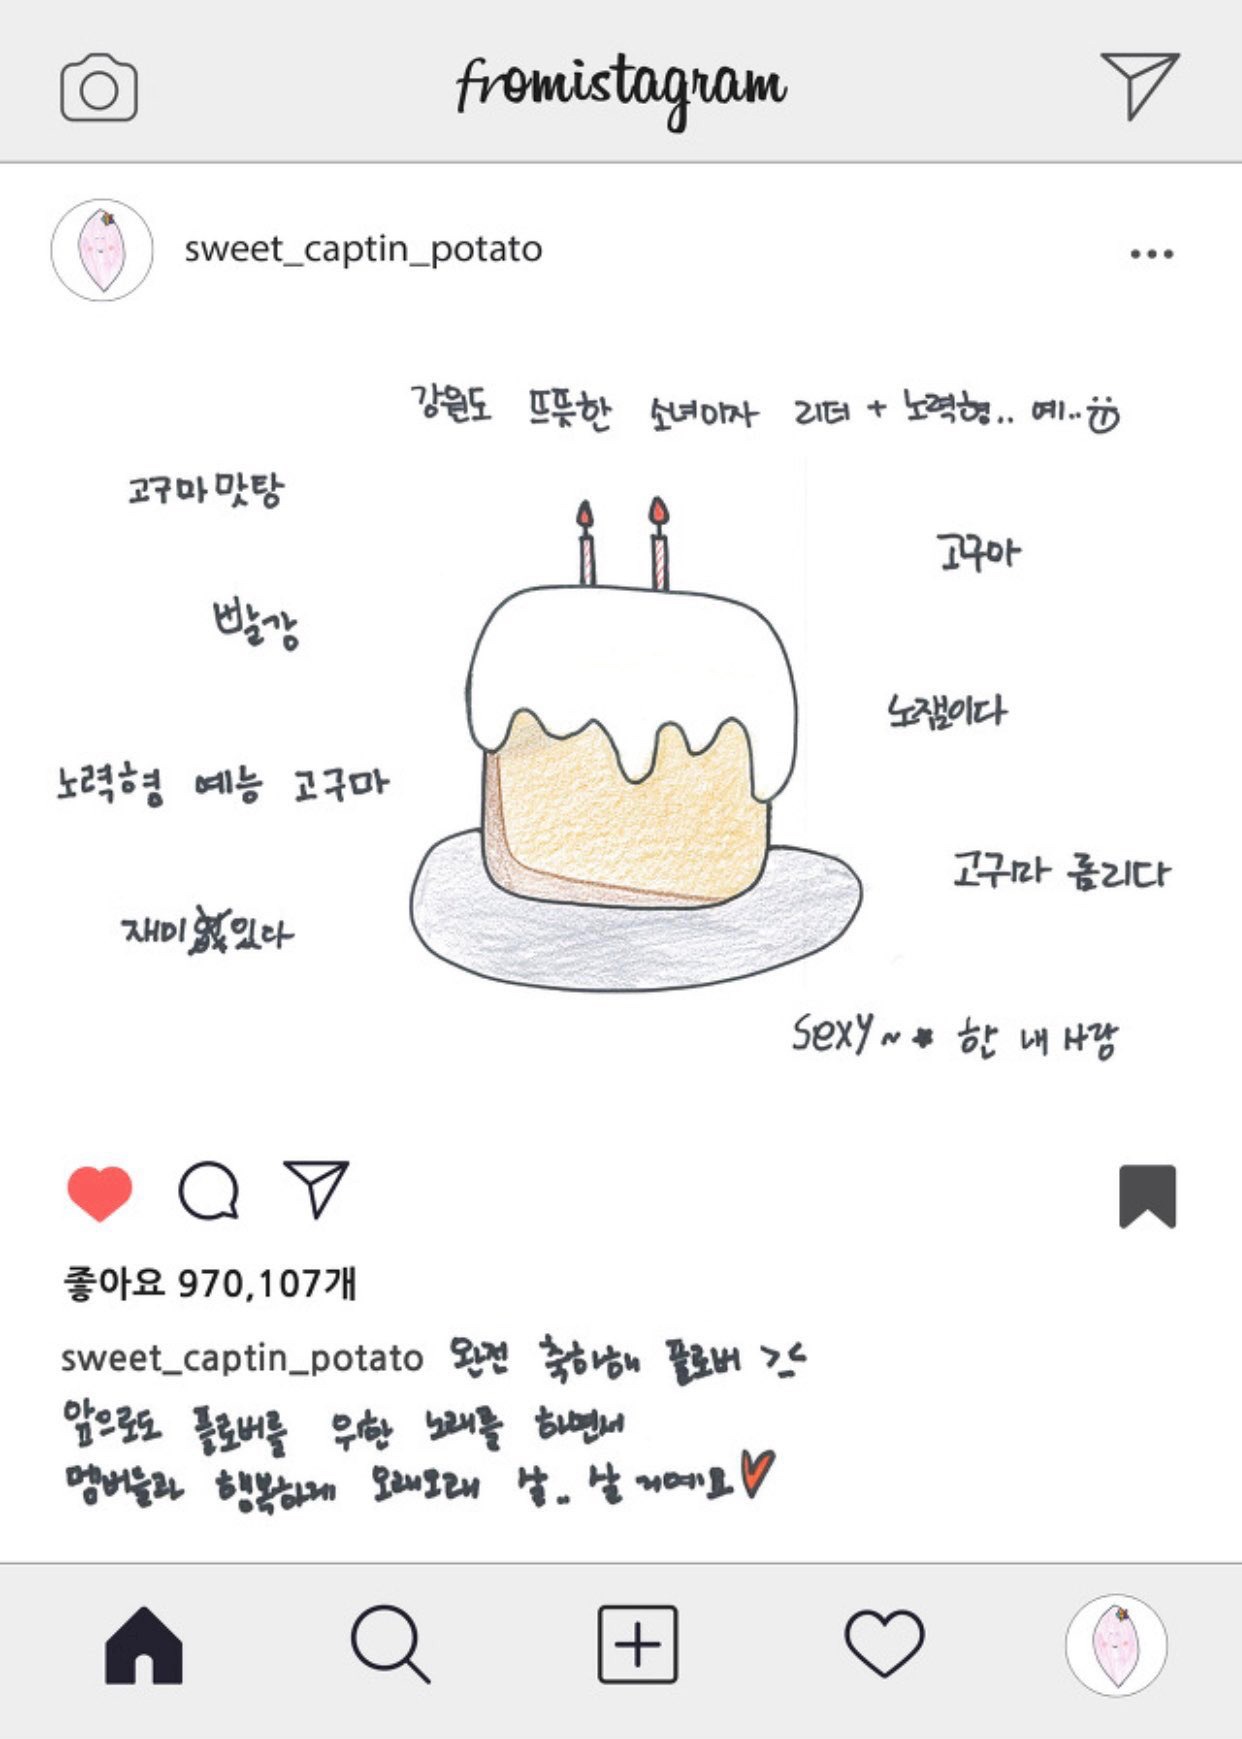 fromistagram
sweet_captin_potato
강원도 뜨뜻한 소녀이자 리더 + 노력형.. 예..
고구마맛탕
고구마
빨강
노잼이다
노력형 예능 고구마
고구마 롬리다
재미있다
sexy~* 한 내 사랑
좋아요 970,107개
sweet_captin_potato 완전 축하해 플로버 >_<
앞으로도 플로버를 위한 노래를 하면서
멤버들과 행복하게 오래오래 살.. 살 거예요